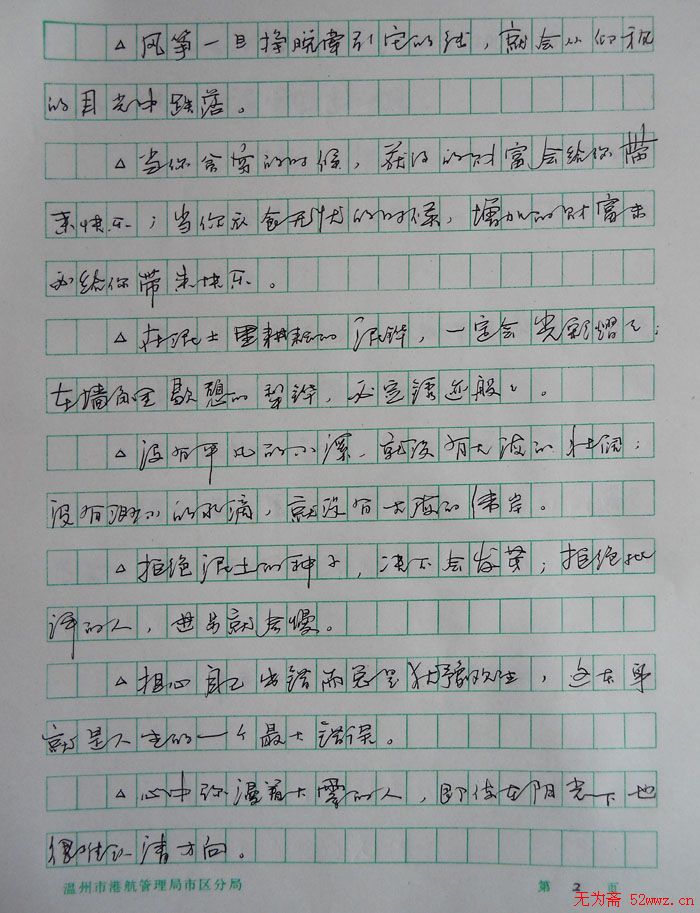 △风筝一旦挣脱牵引它的线，就会从仰视
的目光中跌落。
△当你贫穷的时候，获得的财富会给你带
来快乐；当你衣食无忧的时候，增加的财富未
必给你带来快乐。
△在泥土里耕耘的犁铧，一定会光彩熠々；
在墙角里歇憩的犁铧，必定锈迹般々。
△没有平凡的小溪，就没有大海的壮阔；
没有渺小的水滴，就没有大海的伟岸。
△拒绝泥土的种子，决不会发芽；拒绝批
评的人，进步就会慢。
△担心自己出错而总是犹豫不决，这本身
就是人生的一个最大错误。
△心中弥漫着大雾的人，即使在阳光下也
很难认清方向。
温州市港航管理局市区分局
第 2 页
无为斋 52wwz.cn